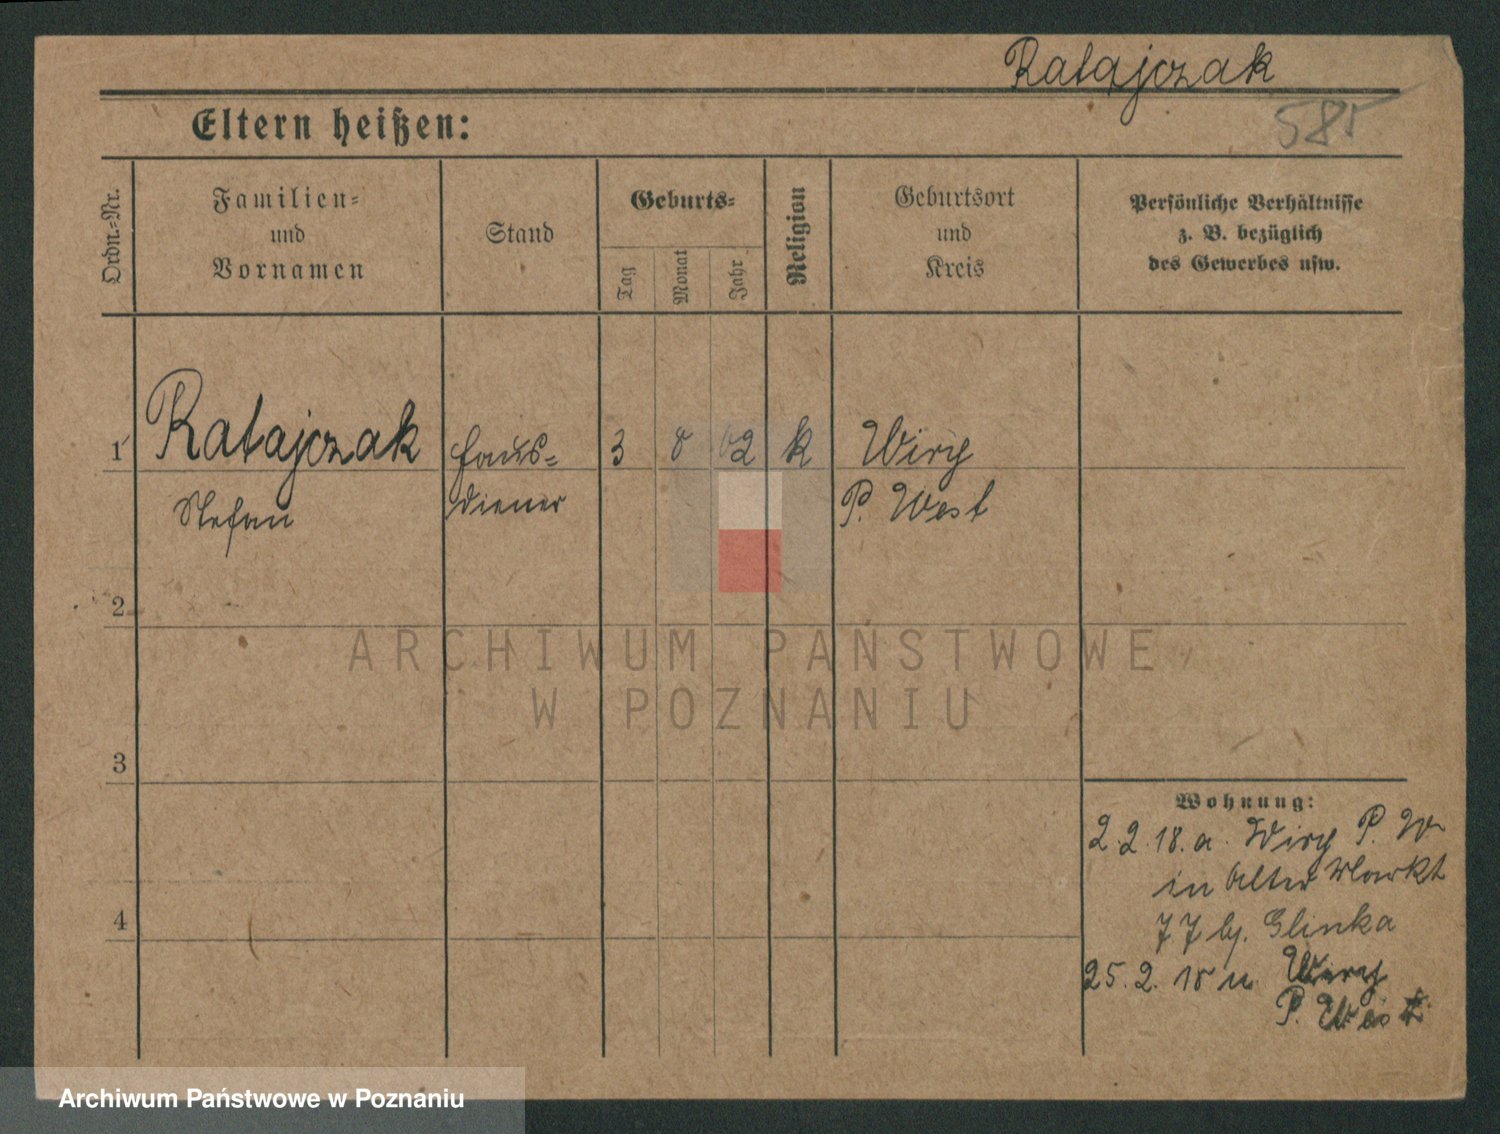 Ratajczak
585
Eltern heißen:
Ordn.-Nr.
Familien-
und
Vornamen
Stand
Geburts-
Tag
Monat
Jahr
Religion
Geburtsort
und
Kreis
Persönliche Verhältnisse
z. B. bezüglich
des Gewerbes usw.
1 Ratajczak Haus- 3 8 02 k Wiry
Stefan diener P. West
2
3
4
Wohnung:
2.2.18. a. Wiry P. W
in Alter Markt
77 bj. Glinka
25.2.18 n. Wiry
P. West
ARCHIWUM PAŃSTWOWE
W POZNANIU
Archiwum Państwowe w Poznaniu